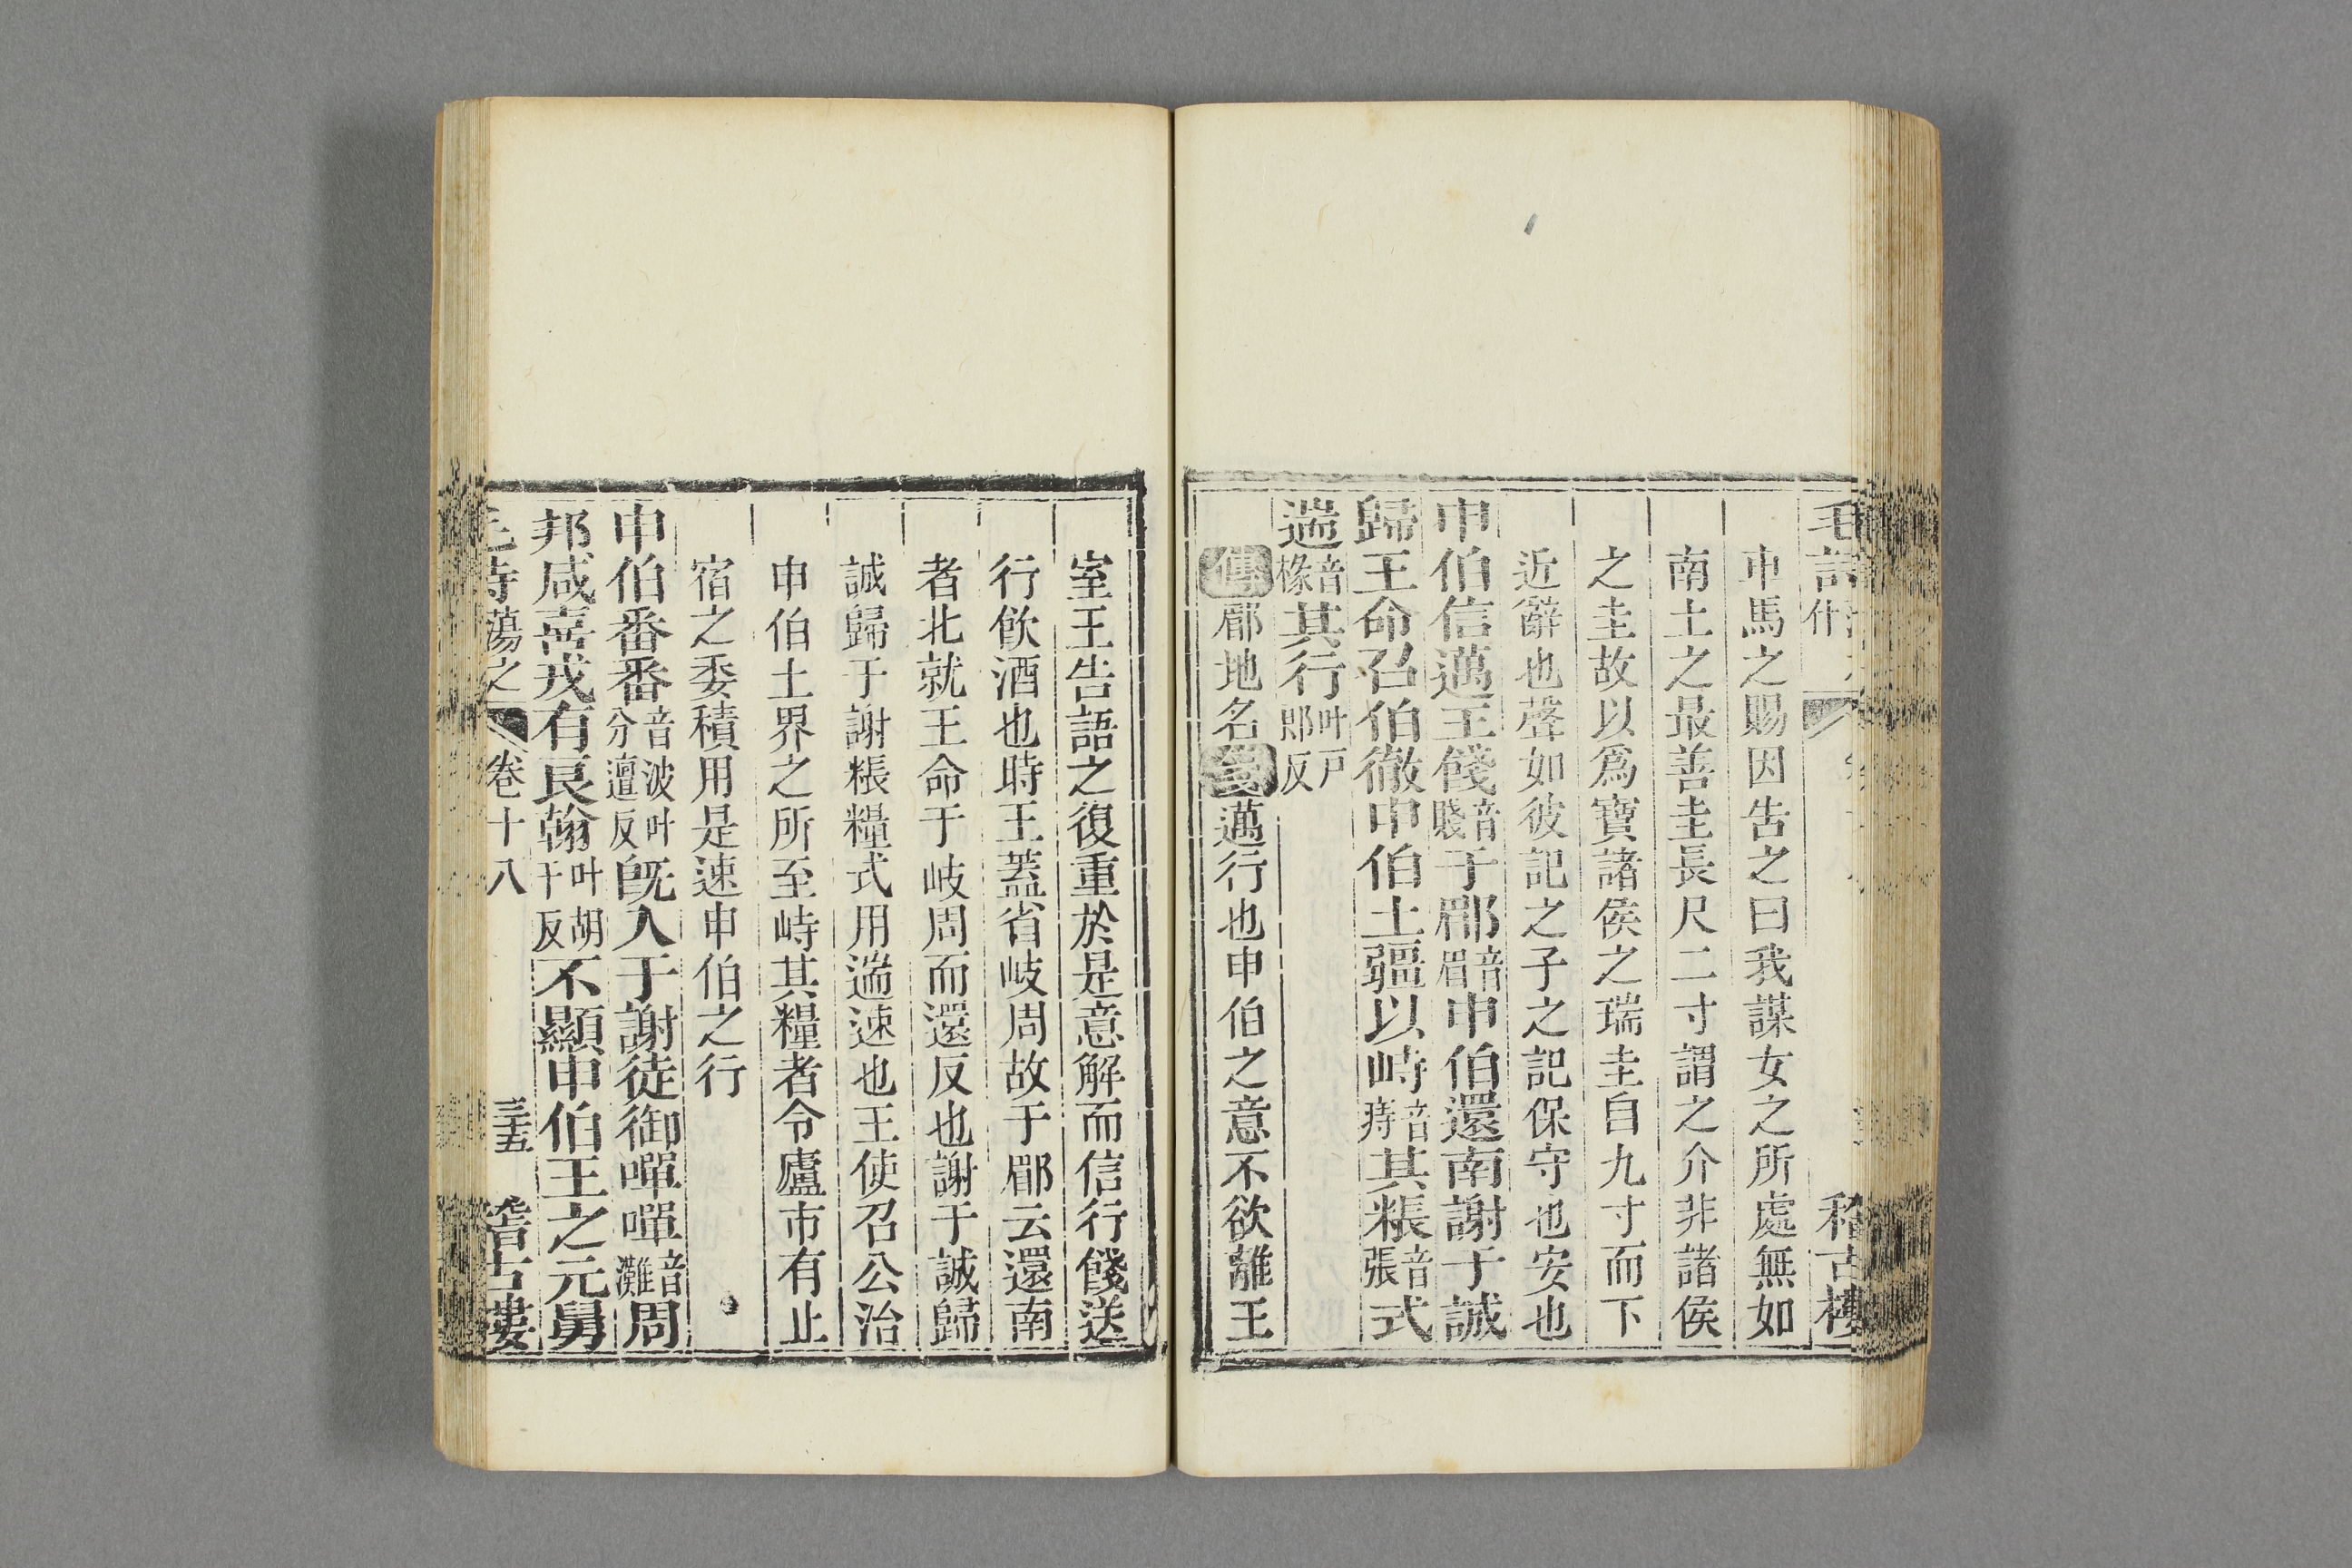 毛詩 什 稽古樓
車馬之賜因告之曰我謀女之所處無如
南土之最善圭長尺二寸謂之介非諸侯
之圭故以爲寶諸侯之瑞圭自九寸而下
近辭也聲如彼記之子之記保守也安也
申伯信邁王餞音賤于郿音眉申伯還南謝于誠
歸王命召伯徹申伯土疆以峙音痔其粻音張式
遄音椽其行叶戸郎反
傳郿地名箋邁行也申伯之意不欲離王
室王告語之復重於是意解而信行餞送
行飮酒也時王蓋省岐周故于郿云還南
者北就王命于岐周而還反也謝于誠歸
誠歸于謝粻糧式用遄速也王使召公治
申伯土界之所至峙其糧者令廬市有止
宿之委積用是速申伯之行
申伯番番音波叶分邅反旣入于謝徒御嘽嘽音灘周
邦咸喜戎有良翰叶胡干反不顯申伯王之元舅
毛詩蕩之 卷十八 三十五 稽古樓